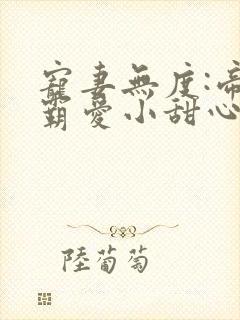 寵妻無度:帝
霸愛小甜心
陸葡萄